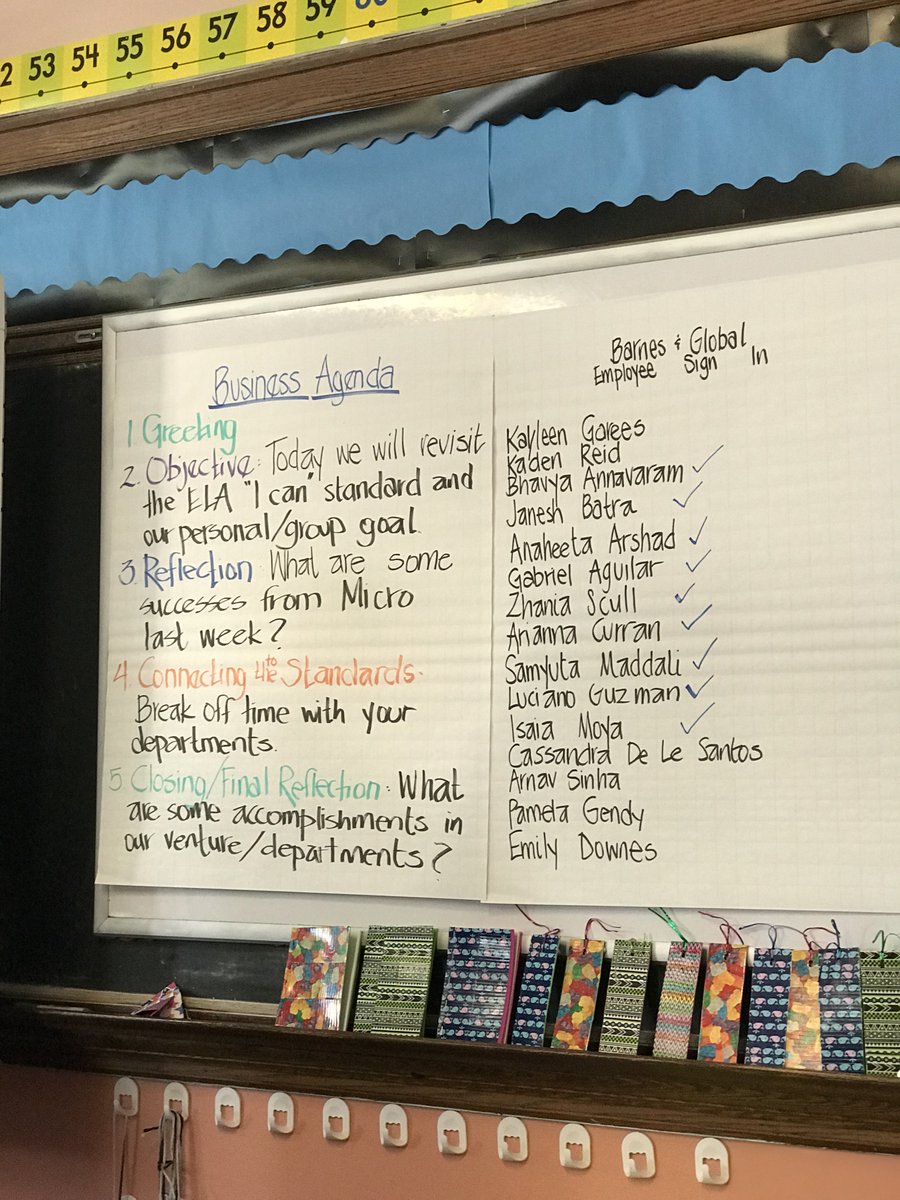 53 54 55 56 57 58 59
Business Agenda
1. Greeting
2. Objective: Today we will revisit
the ELA "I can" standard and
our personal/group goal.
3. Reflection: What are some
successes from Micro
last week?
4. Connecting to the Standards:
Break off time with your
departments.
5 Closing/Final Reflection: What
are some accomplishments in
our venture/departments?
Barnes & Global
Employee Sign In
Kayleen Gorees
Kaden Reid
Bhavya Annavaram ✓
Janesh Batra ✓
Anaheeta Arshad ✓
Gabriel Aguilar ✓
Zhania Scull ✓
Arianna Curran ✓
Samyuta Maddali ✓
Luciano Guzman ✓
Isaia Moya ✓
Cassandra De Le Santos
Arnav Sinha
Pameta Gendy
Emily Downes